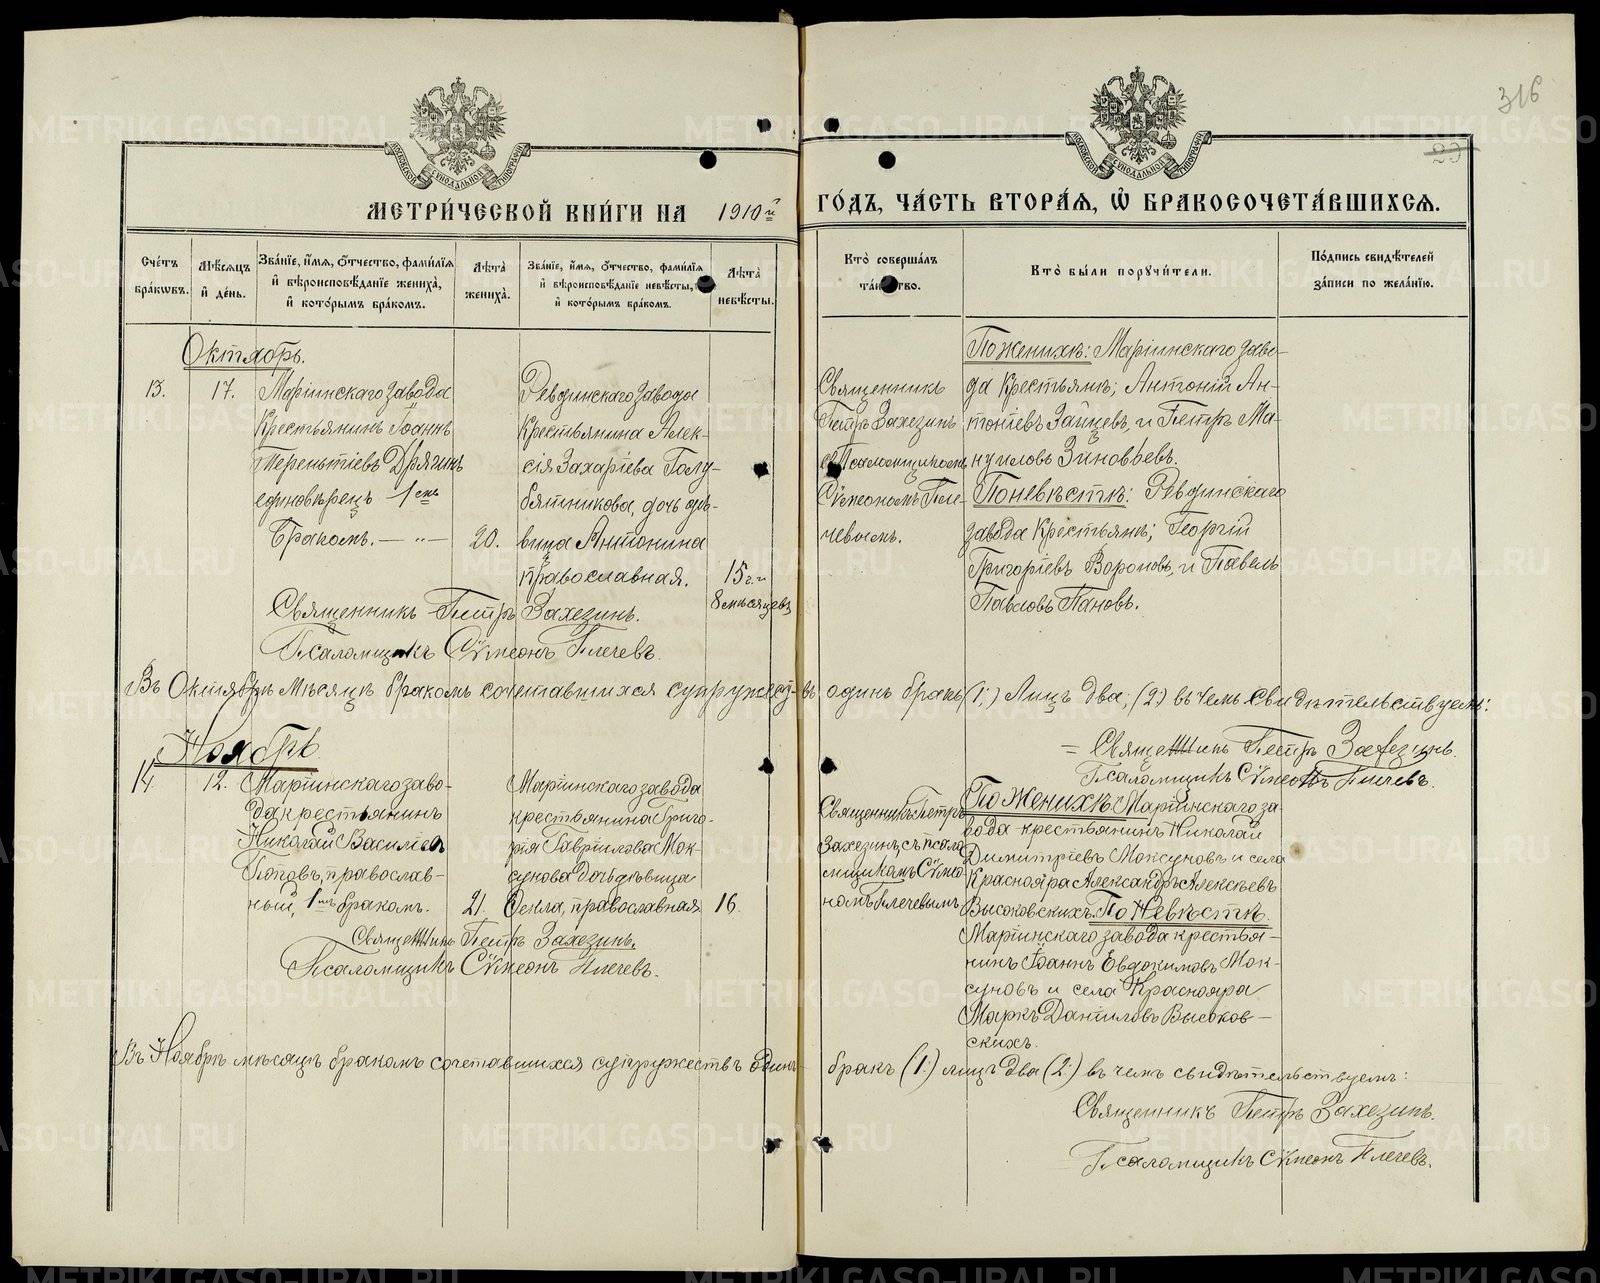 316
29
МЕТРИ́ЧЕСКОЙ КНИ́ГИ НА 1910й ГО́ДЪ, ЧА́СТЬ ВТОРА́Я, Ѡ БРАКОСОЧЕТА́ВШИХСЯ.
Сче́тъ бра́кѡвъ.
Мѣ́сяцъ и҆ де́нь.
Зва́нїе, и҆́мя, ѻ҆́тчество, фами́лїя
и҆ вѣроисповѣ́данїе жениха̀,
и҆ кото́рымъ бра́комъ.
Лѣта̀ жениха̀.
Зва́нїе, и҆́мя, ѻ҆́тчество, фами́лїя
и҆ вѣроисповѣ́данїе невѣ́сты,
и҆ кото́рымъ бра́комъ.
Лѣта̀ невѣ́сты.
Кто̀ соверша́лъ
та́инство.
Кто̀ бы́ли поручи́тели.
По́дпись свидѣ́телей
за́писи по жела́нїю.
Октябрь.
13. 17. Маріинскаго завода
Крестьянинъ Іоаннъ
Терентіевъ Дрягинъ
единовѣрецъ 1емъ
бракомъ. — „ — 20.
Ревдинскаго завода
Крестьянина Алек-
сія Захаріева Голу-
бятникова, дочь дѣ-
вица Антонина
православная. 15 г. и
8 мѣсяцевъ
Священникъ
Петръ Захезинъ
съ Псаломщикомъ
Сѵмеономъ Пле-
чевымъ.
По женихѣ: Маріинскаго заво-
да Крестьянѣ; Антоній Ан-
тоніевъ Зайцевъ, и Петръ Ма-
нуиловъ Зиновьевъ.
По невѣстѣ: Ревдинскаго
завода Крестьянѣ; Георгій
Григоріевъ Вороновъ, и Павелъ
Павловъ Пановъ.
Священникъ Петръ Захезинъ.
Псаломщикъ Сѵмеонъ Плечевъ.
Въ Октябрѣ мѣсяцѣ бракомъ сочетавшихся супружествъ одинъ бракъ (1:) Лицъ два; (2:) въ чемъ свидѣтельствуемъ:
Священникъ Петръ Захезинъ.
Псаломщикъ Сѵмеонъ Плечевъ.
Ноябрь
14 12. Маріинскаго заво-
да крестьянинъ
Николай Василіевъ
Поповъ, православ-
ный, 1мъ бракомъ. 21.
Маріинскаго завода
крестьянина Григо-
рія Гавріилова Мок-
сунова дочь дѣвица
Ѳекла, православная 16.
Священникъ Петръ
Захезинъ, съ псало-
мщикомъ Сѵмео-
номъ Плечевымъ
По Женихѣ: Маріинскаго за-
вода крестьянинъ Николай
Димитріевъ Моксуновъ и села
Краснояра Александръ Алексѣевъ
Высоковскихъ. По Невѣстѣ.
Маріинскаго завода крестья-
нинъ Іоаннъ Евдокимовъ Мок-
суновъ и села Краснояра
Маркъ Даниловъ Высоков-
скихъ.
Священникъ Петръ Захезинъ.
Псаломщикъ Сѵмеонъ Плечевъ.
Въ Ноябрѣ мѣсяцѣ бракомъ сочетавшихся супружествъ одинъ бракъ (1:) лицъ два (2:) въ чемъ свидѣтельствуемъ:
Священникъ Петръ Захезинъ.
Псаломщикъ Сѵмеонъ Плечевъ.
METRIKI.GASO-URAL.RU